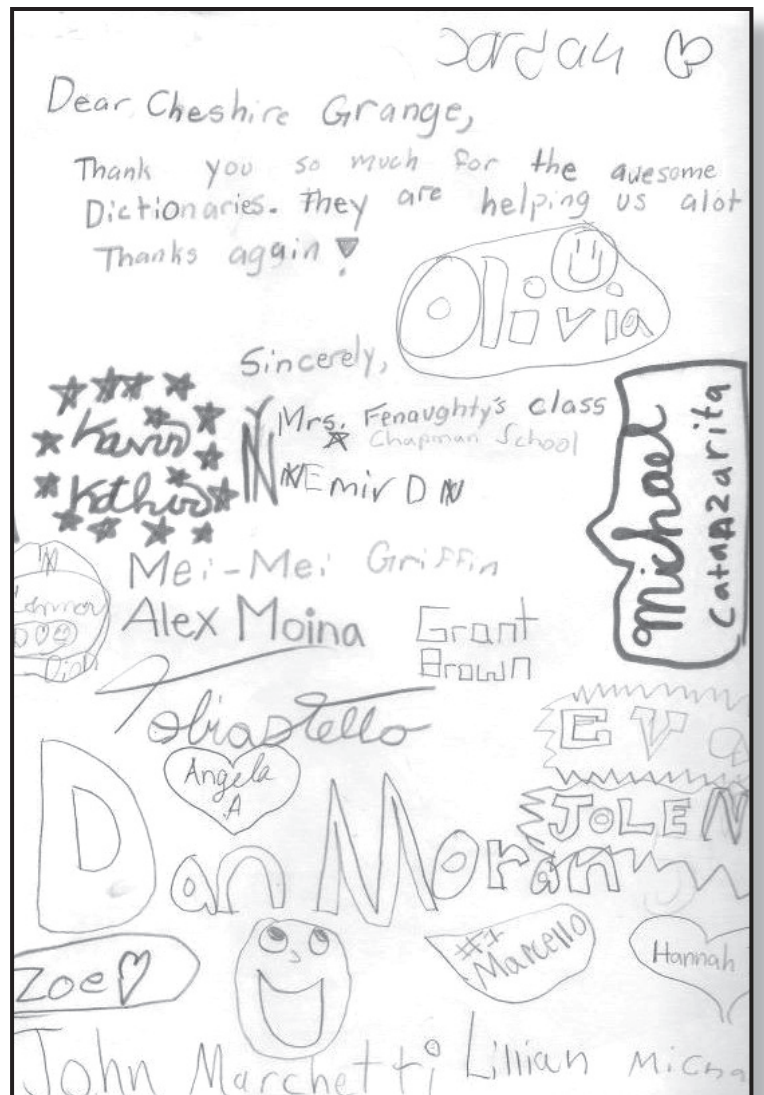 Jordan
Dear Cheshire Grange,
Thank you so much for the awesome
Dictionaries. They are helping us alot
Thanks again!
Olivia
Sincerely,
Mrs. Fenaughty's class
Chapman School
Emir D
Michael
Mei-Mei Griffin
Alex Moina
Grant
Brown
Tobias Tello
Angela
A
Eva
JOLEN
Dan Moran
Zoe
#1
Marcello
Hannah
John Marchetti
Lillian Micha